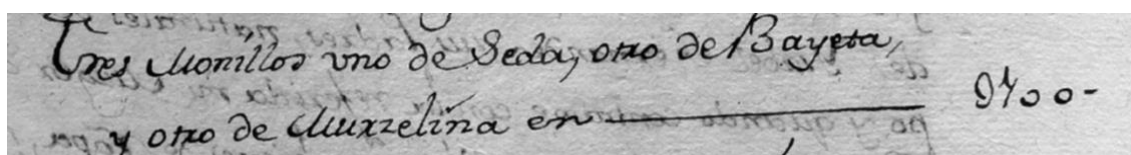 Tres Monillos uno de Seda, otro de Bayeta,
y otro de Muzelina en